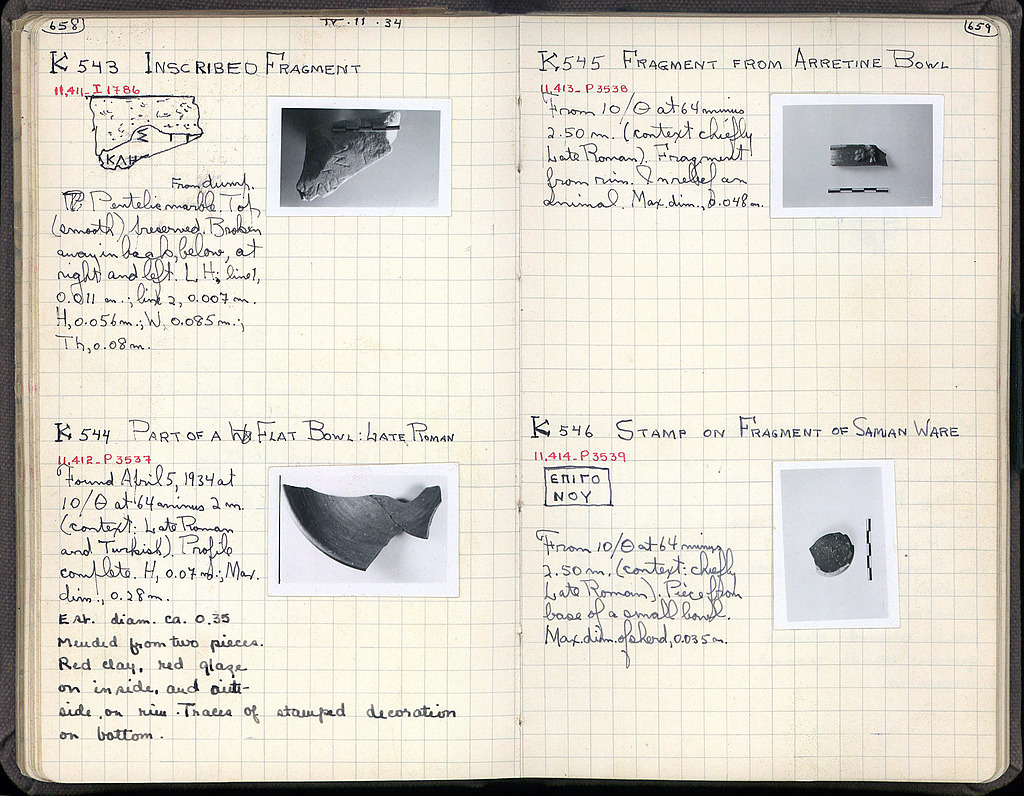 658
IV · 11 · 34
K 543 INSCRIBED FRAGMENT
11,411 - I 1786
Σ
ΚΛΗ
From dump.
Pentelic marble. Top
(smooth) preserved. Broken
away in back, below, at
right and left. L.H.; line 1,
0.011 m.; line 2, 0.007 m.
H, 0.056 m.; W, 0.085 m.;
Th, 0.08 m.
K 544 PART OF A FLAT BOWL: LATE ROMAN
11,412 - P 3537
Found April 5, 1934 at
10/Θ at 64 minus 2 m.
(context: Late Roman
and Turkish). Profile
complete. H, 0.07 m.; Max.
dim., 0.28 m.
Est. diam. ca. 0.35
Mended from two pieces.
Red clay, red glaze
on inside, and out-
side on rim. Traces of stamped decoration
on bottom.
659
K 545 FRAGMENT FROM ARRETINE BOWL
11,413 - P 3538
From 10/Θ at 64 minus
2.50 m. (context chiefly
Late Roman). Fragment
from rim. In relief an
animal. Max. dim., 0.048 m.
K 546 STAMP ON FRAGMENT OF SAMIAN WARE
11,414 - P 3539
ΕΠΙΓΟ
ΝΟΥ
From 10/Θ at 64 minus
2.50 m. (context: chiefly
Late Roman). Piece from
base of a small bowl.
Max. dim. of sherd, 0.035 m.